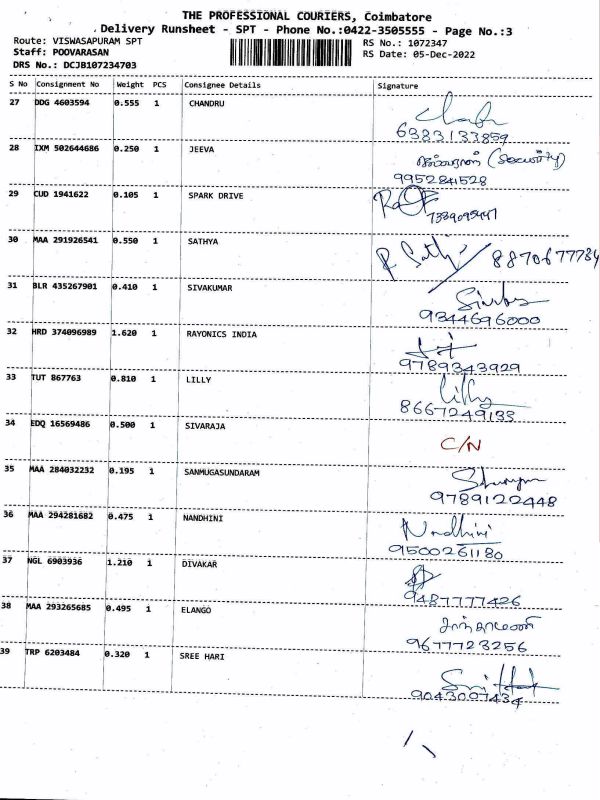 THE PROFESSIONAL COURIERS, Coimbatore
Delivery Runsheet - SPT - Phone No.:0422-3505555 - Page No.:3
Route: VISWASAPURAM SPT
RS No.: 1072347
Staff: POOVARASAN
RS Date: 05-Dec-2022
DRS No.: DCJB107234703
S No Consignment No Weight PCS Consignee Details Signature
27 DDG 4603594 0.555 1 CHANDRU
6383133859
28 IXM 502644686 0.250 1 JEEVA
(security)
9952841528
29 CUD 1941622 0.105 1 SPARK DRIVE
30 MAA 291926541 0.550 1 SATHYA
R Sathy 8870677784
31 BLR 435267901 0.410 1 SIVAKUMAR
9344696000
32 HRD 374096989 1.620 1 RAYONICS INDIA
9789343929
33 TUT 867763 0.810 1 LILLY
Lilly
8667249133
34 EDQ 16569486 0.500 1 SIVARAJA
C/N
35 MAA 284032232 0.195 1 SANMUGASUNDARAM
9789122448
36 MAA 294281682 0.475 1 NANDHINI
Nandhini
9500261180
37 NGL 6903936 1.210 1 DIVAKAR
9487777426
38 MAA 293265685 0.495 1 ELANGO
சாந்தாமணி
9677723256
39 TRP 6203484 0.320 1 SREE HARI
9043007434